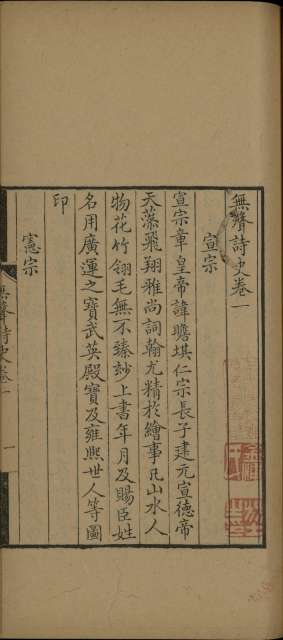 無聲詩史卷一
宣宗
宣宗章皇帝諱瞻基仁宗長子建元宣德帝
天藻飛翔雅尚詞翰尤精於繪事凡山水人
物花竹翎毛無不臻玅上書年月及賜臣姓
名用廣運之寶武英殿寶及雍熙世人等圖
印
憲宗
無聲詩史卷一
一